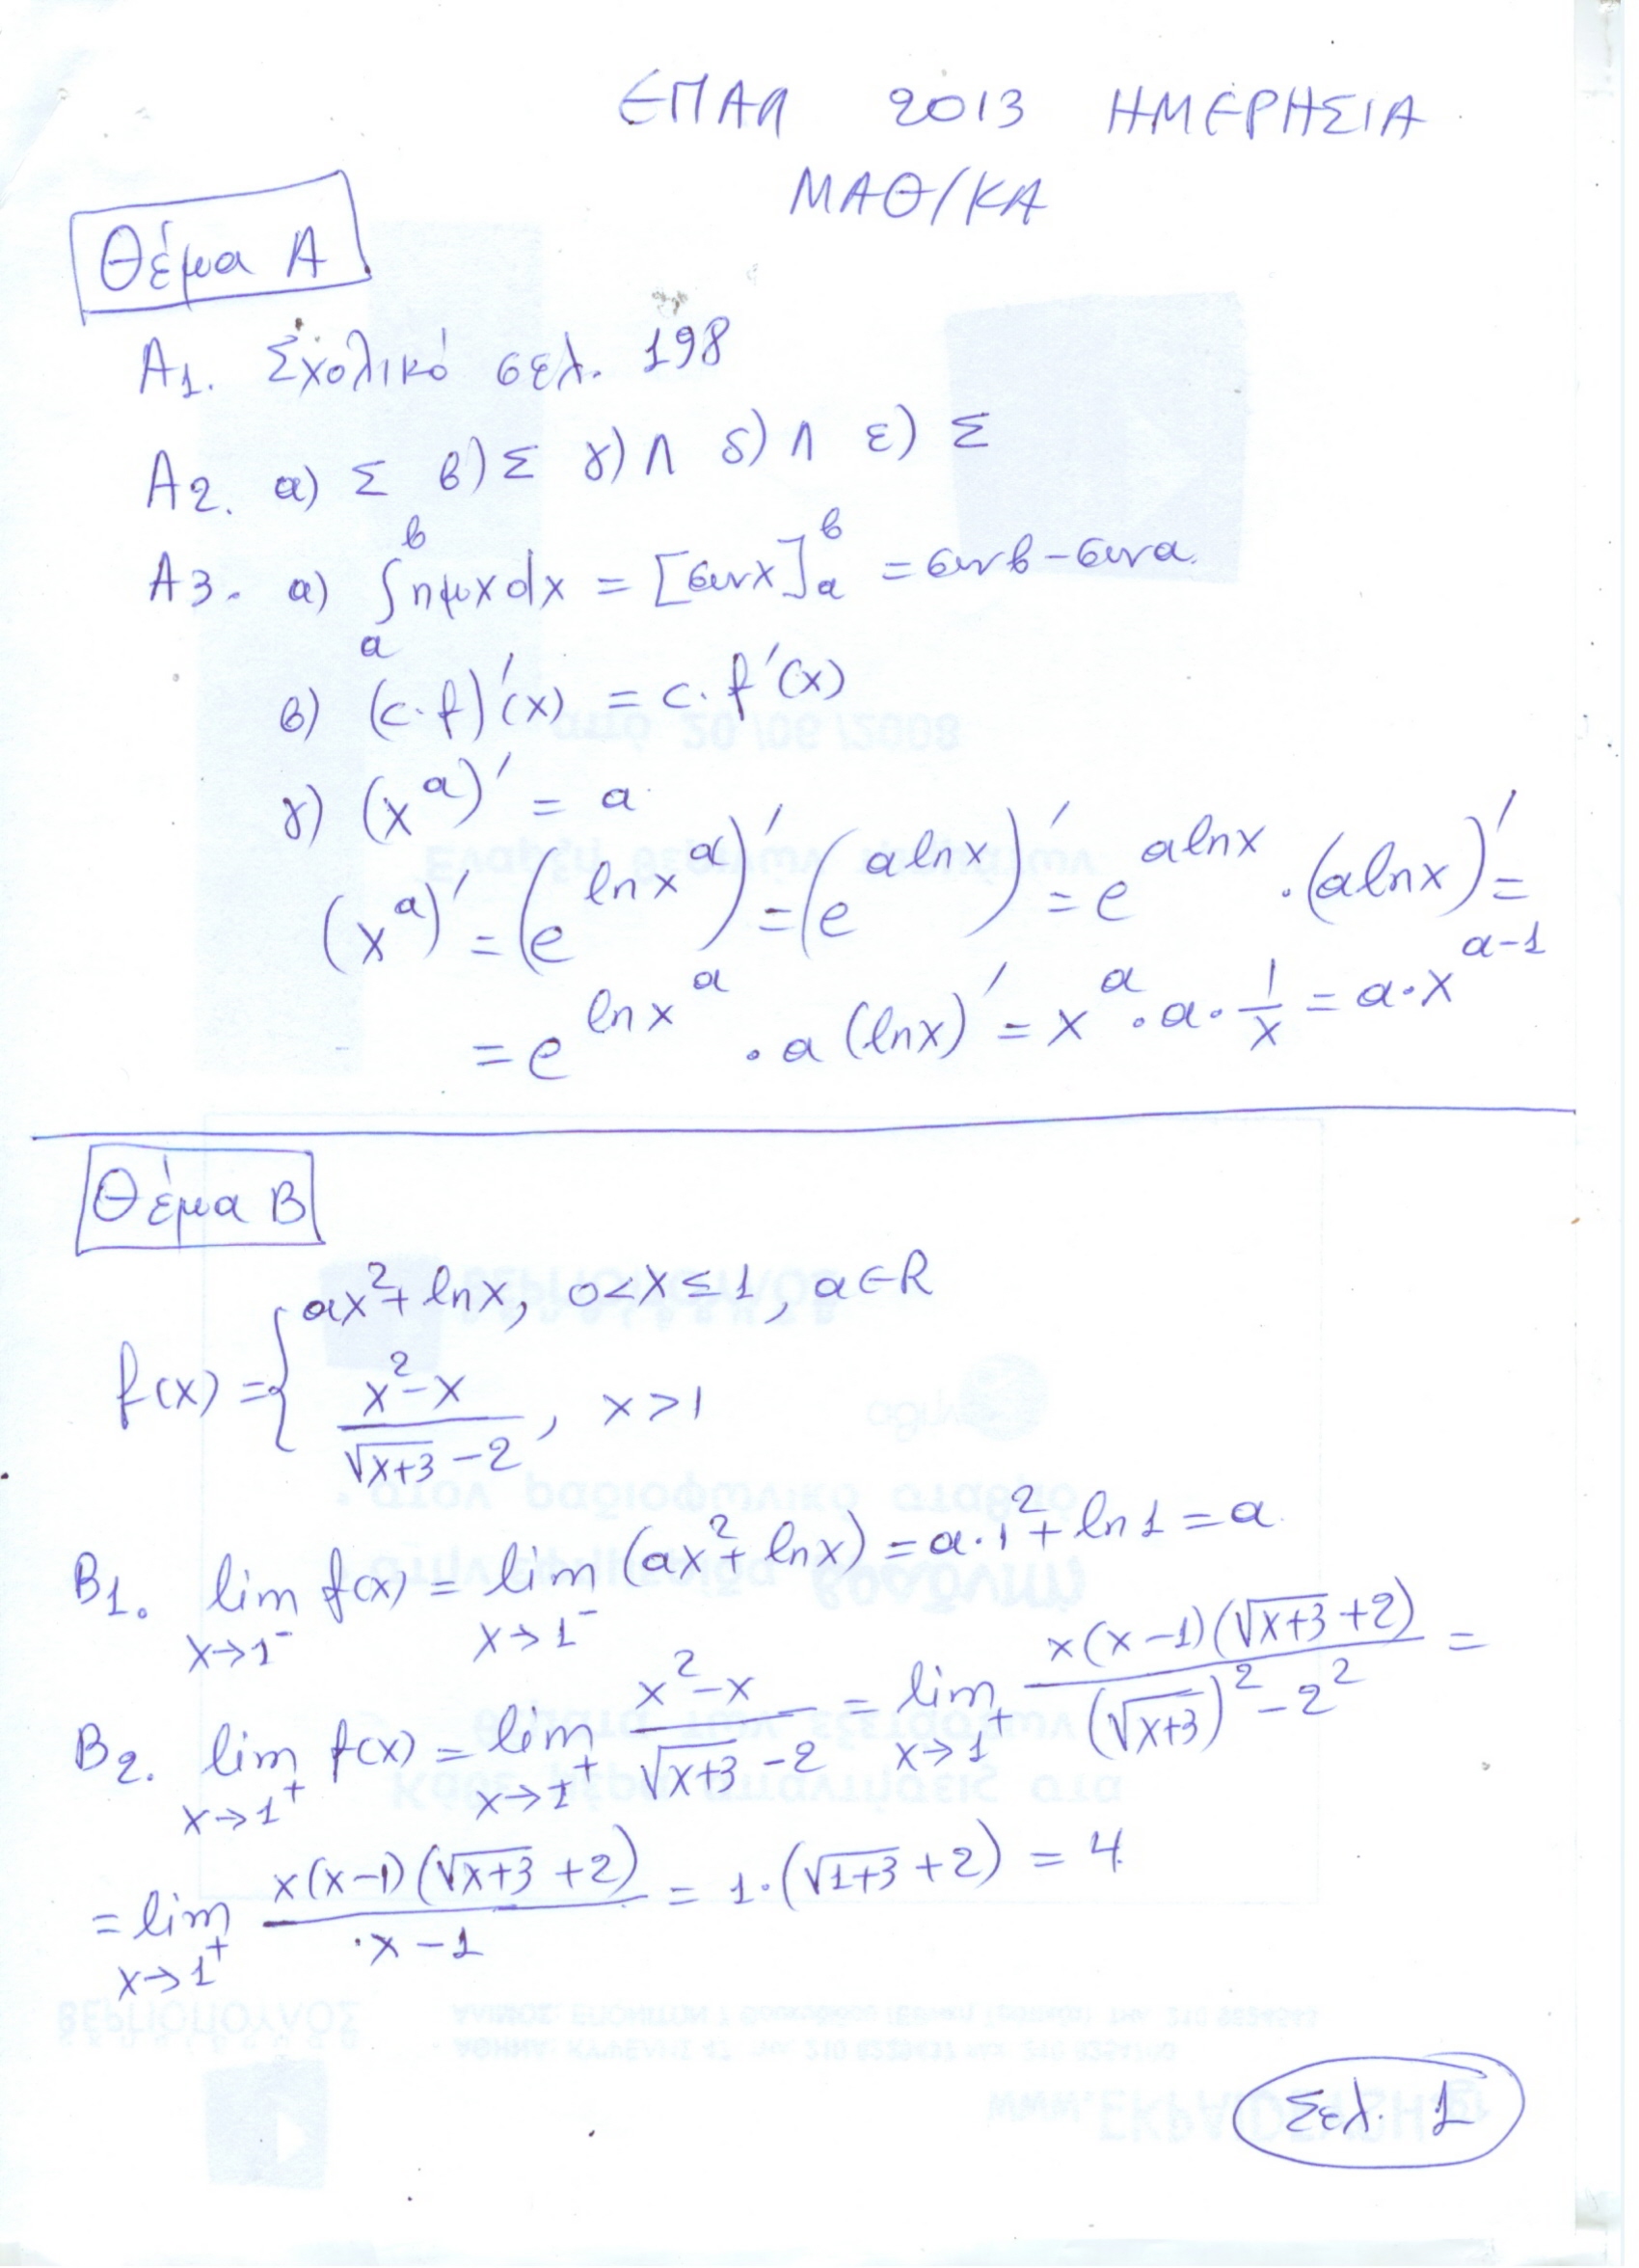 ΕΠΑΛ 2013 ΗΜΕΡΗΣΙΑ
ΜΑΘ/ΚΑ
Θέμα Α
Α1. Σχολικό σελ. 198
Α2. α) Σ β) Σ γ) Λ δ) Λ ε) Σ
Α3. α) ∫_α^β ημx dx = [συνx]_α^β = συνβ - συνα
β) (c·f)'(x) = c·f'(x)
γ) (x^α)' = α
(x^α)' = (e^{lnx^α})' = (e^{αlnx})' = e^{αlnx} · (αlnx)' =
= e^{lnx^α} · α(lnx)' = x^α · α · 1/x = α·x^{α-1}
Θέμα Β
f(x) = { αx² + lnx, 0<x≤1, α∈R
(x²-x)/(√(x+3) -2), x>1
Β1. lim_{x→1⁻} f(x) = lim_{x→1⁻} (αx² + lnx) = α·1² + ln1 = α
Β2. lim_{x→1⁺} f(x) = lim_{x→1⁺} (x²-x)/(√(x+3) -2) = lim_{x→1⁺} x(x-1)(√(x+3) +2)/((√(x+3))² - 2²) =
= lim_{x→1⁺} x(x-1)(√(x+3) +2)/(x-1) = 1·(√(1+3) +2) = 4
Σελ. 1